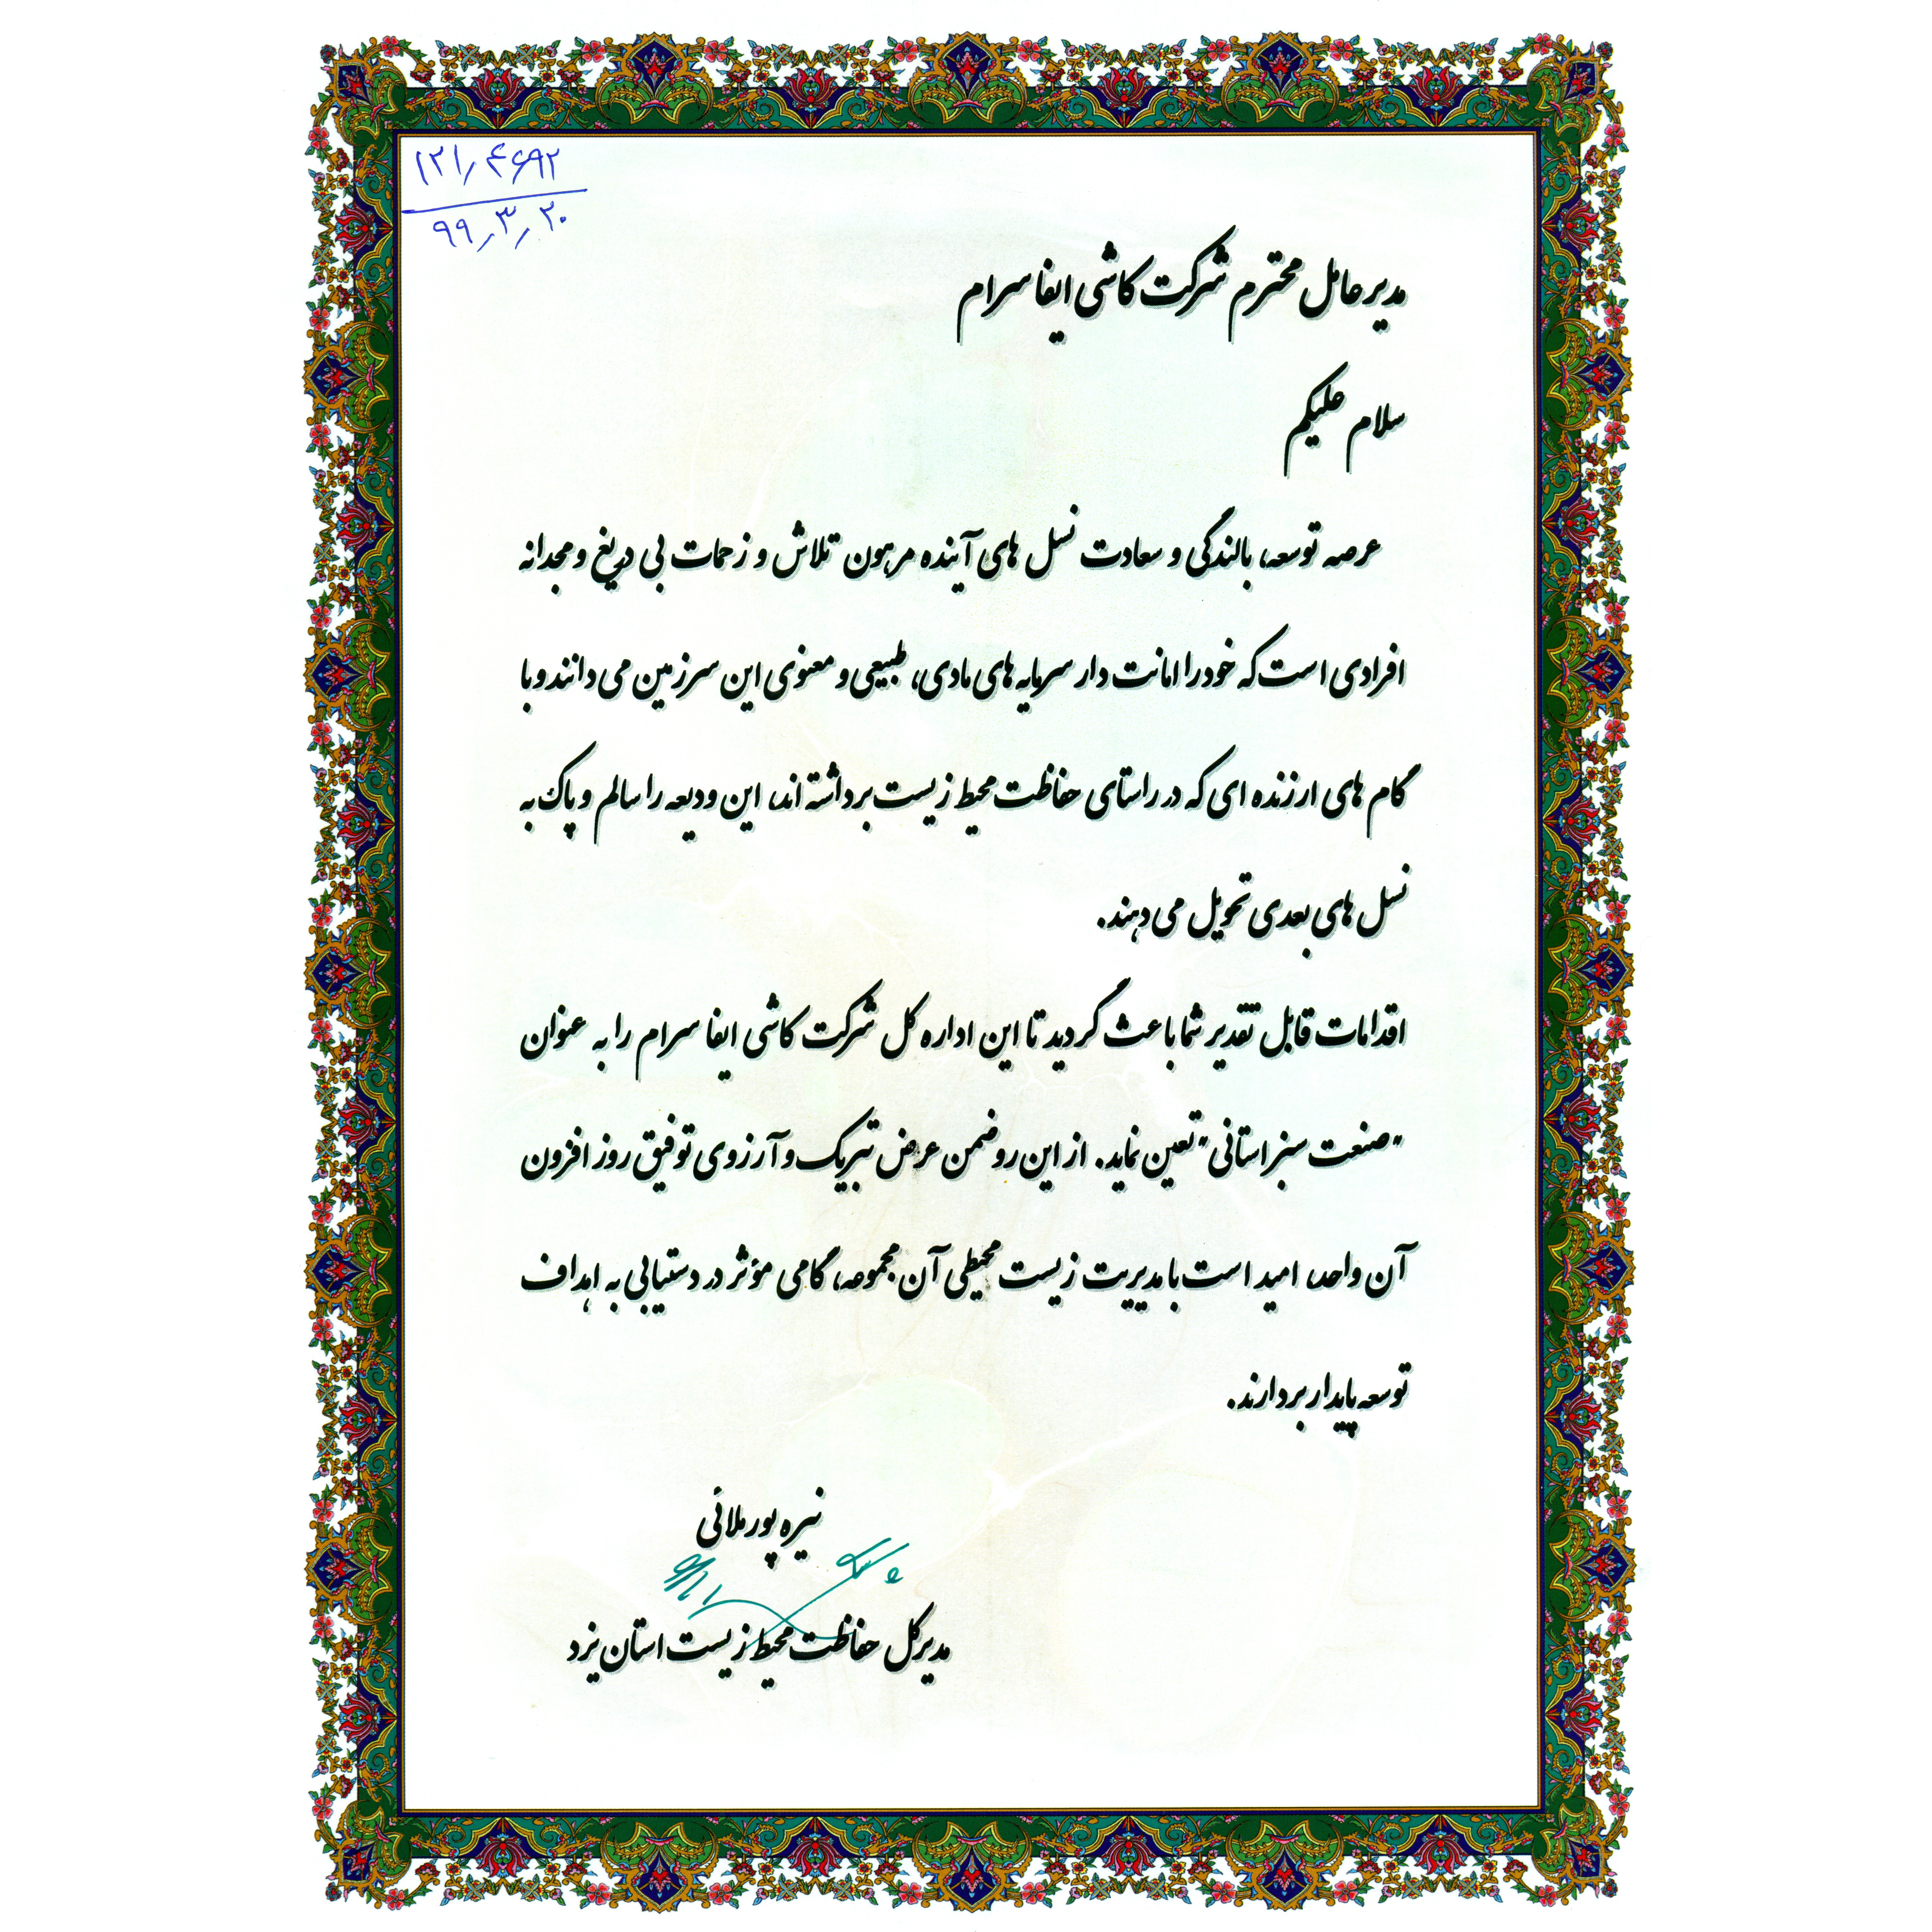 ۱۲۱٫۴۶۹۲
۹۹٫۳٫۲۰
مدیر عامل محترم شرکت کاشی ایفا سرام
سلام علیکم
عرصه توسعه، بالندگی و سعادت نسل های آینده مرهون تلاش و زحمات بی دریغ و مجدانه
افرادی است که خود را امانت دار سرمایه های مادی، طبیعی و معنوی این سرزمین می دانند و با
گام های ارزنده ای که در راستای حفاظت محیط زیست برداشته اند، این ودیعه را سالم و پاک به
نسل های بعدی تحویل می دهند.
اقدامات قابل تقدیر شما باعث گردید تا این اداره کل شرکت کاشی ایفا سرام را به عنوان
"صنعت سبز استانی" تعین نماید. از این رو ضمن عرض تبریک و آرزوی توفیق روز افزون
آن واحد، امید است با مدیریت زیست محیطی آن مجموعه، گامی مؤثر در دستیابی به اهداف
توسعه پایدار بردارند.
نیره پور ملائی
مدیر کل حفاظت محیط زیست استان یزد